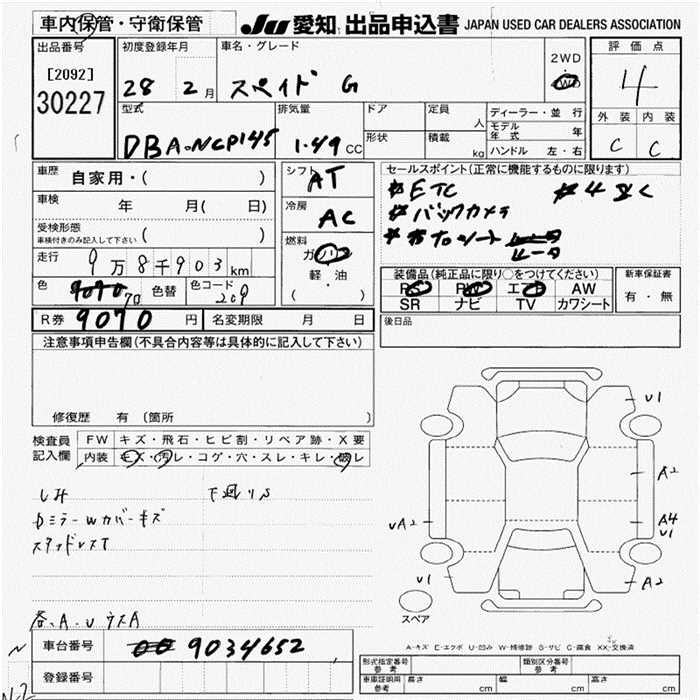 車内保管・守衛保管
JU 愛知 出品申込書 JAPAN USED CAR DEALERS ASSOCIATION
出品番号
[2092]
30227
初度登録年月
28 2月
車名・グレード
スペイド G
2WD
・
4WD
評価点
4
外装 内装
C C
型式
DBA-NCP145
排気量
1.49 CC
ドア
形状
定員
人
積載
kg
ディーラー・並行
モデル年式 年
ハンドル 左・右
車歴
自家用・( )
車検
年 月( 日)
受検形態
車検付きのみ記入して下さい ( )
走行
9万8千903km
色
クロ
色替
色コード
209
シフト
AT
冷房
AC
燃料
ガソリン
軽・油
( )
セールスポイント(正常に機能するものに限ります)
* ETC
* バックカメラ
装備品(純正品に限り○をつけてください)
PS PW エアB AW
SR ナビ TV カワシート
新車保証書
有・無
R券 9070 円
名変期限 月 日
後日品
注意事項申告欄(不具合内容等は具体的に記入して下さい)
修復歴 有(箇所 )
検査員
記入欄
FW キズ・飛石・ヒビ割・リペア跡・X要
内装 キズ・汚レ・コゲ・穴・スレ・キレ・破レ
シミ 下廻りS
DミラーWカバーキズ
スタッドレスT
各、A、U ウスA
U1
A2
A4
U1
UA2
U1
A2
スペア
A-キズ E-エクボ U-凹み W-補修跡 S-サビ C-腐食 XX-交換済
車台番号
9034652
登録番号
型式指定番号
参考
類別区分番号
参考
車庫証明用
参考
長さ cm 幅 cm 高さ cm